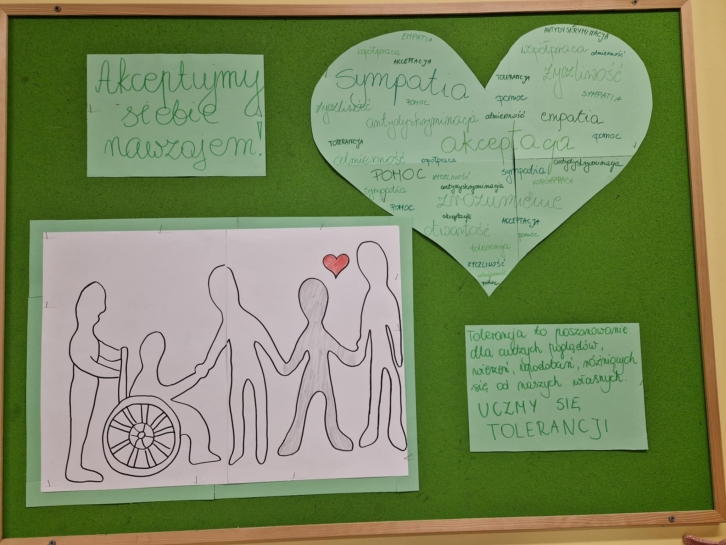 Akceptujmy
siebie
nawzajem!
EMPATIA
ANTYDYSKRYMINACJA
współpraca
AKCEPTACJA
współpraca
odmienność
Sympatia
TOLERANCJA
życzliwość
życzliwość
POMOC
pomoc
SYMPATIA
antydyskryminacja
odmienność
empatia
TOLERANCJA
akceptacja
pomoc
odmienność
współpraca
antydyskryminacja
POMOC
sympatia
sympatia
antydyskryminacja
zrozumienie
POMOC
akceptacja
otwartość
AKCEPTACJA
pomoc
tolerancja
ŻYCZLIWOŚĆ
pomoc
Tolerancja to poszanowanie
dla cudzych poglądów,
wierzeń, upodobań, różniących
się od naszych własnych.
UCZMY SIĘ
TOLERANCJI